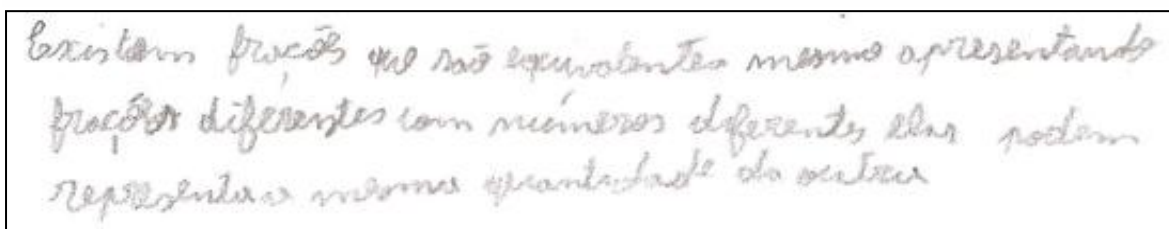 Existem frações que são equivalentes mesmo apresentando
frações diferentes com números diferentes elas podem
representar a mesma quantidade da outra